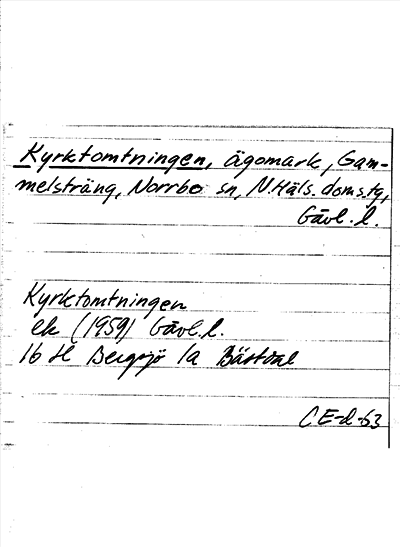 Kyrktomtningen, ägomark, Gam-
melsträng, Norrbo sn, N.Häls. doms.tg,
Gävl. l.
Kyrktomtningen
ek (1959) Gävl. l.
16 H Bergsjö 1a Bästdal
CE-d-63